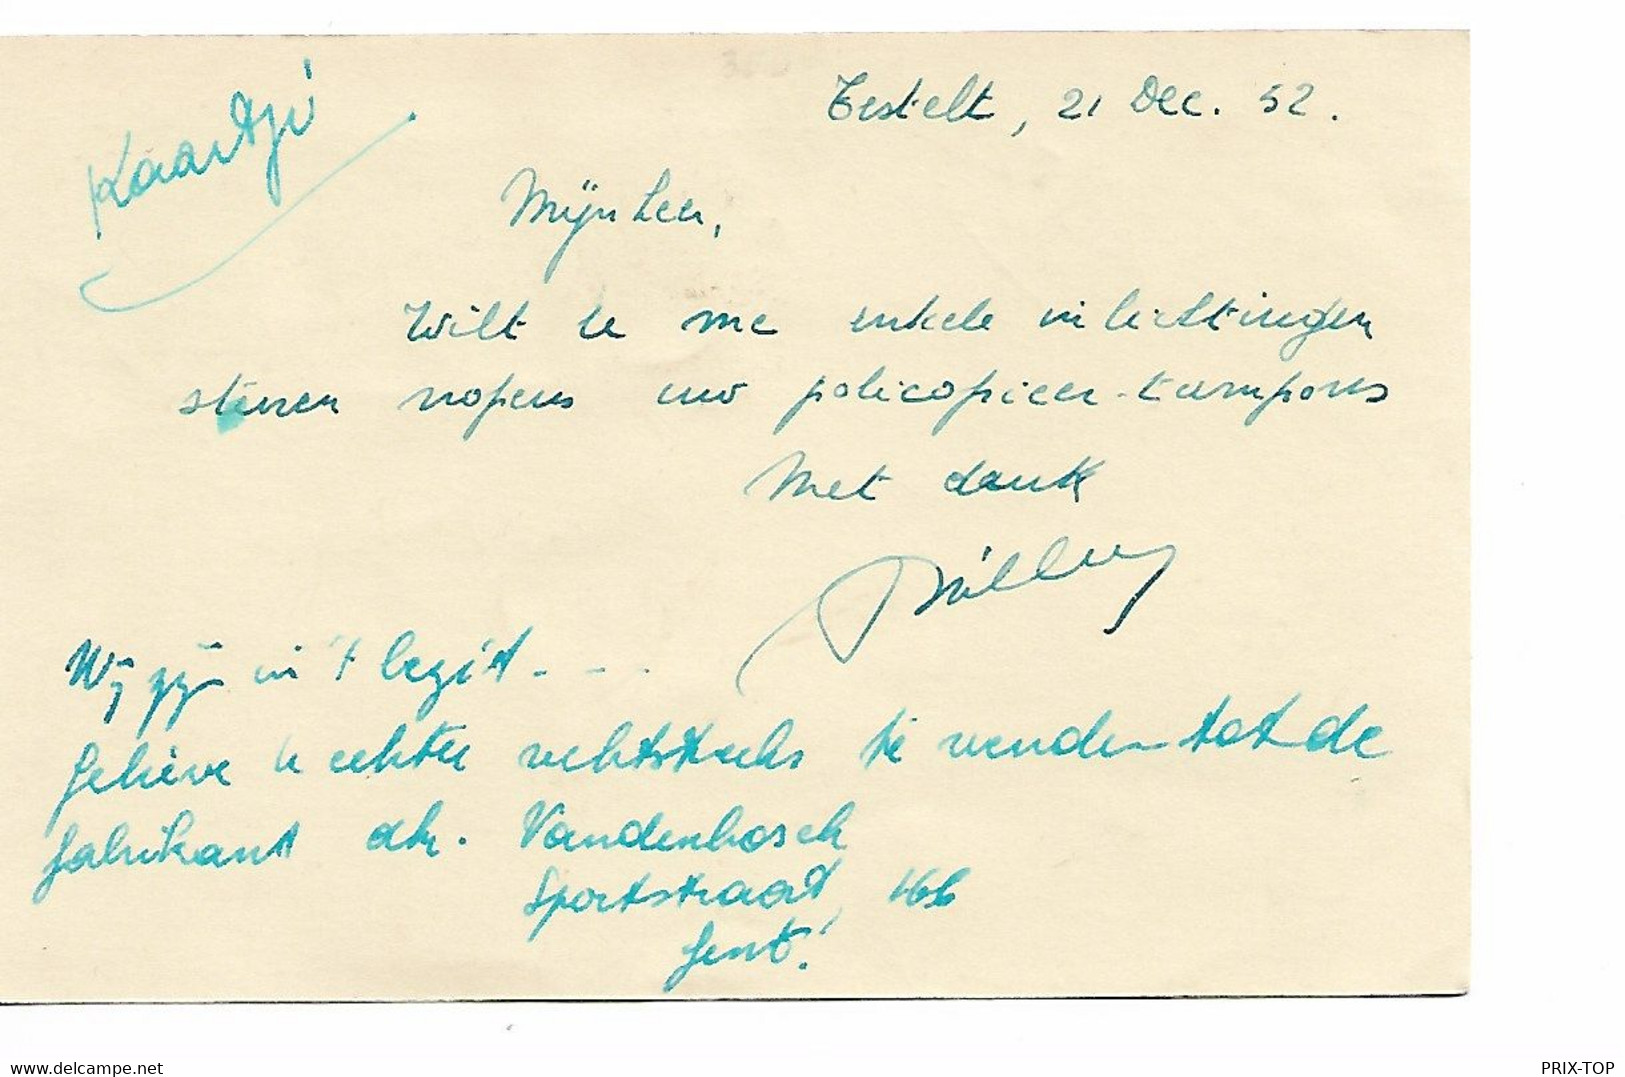 Kaartje
Testelt, 21 Dec. 52.
Mijnheer,
Wilt U me enkele inlichtingen
sturen nopens uw policopieer-tampons
Met dank
Wij zijn in 't bezit - - -
Gelieve U echter rechtstreeks te wenden tot de
fabrikant dhr. Vandenbosch
Sportstraat, 166
Gent!
www.delcampe.net
PRIX-TOP